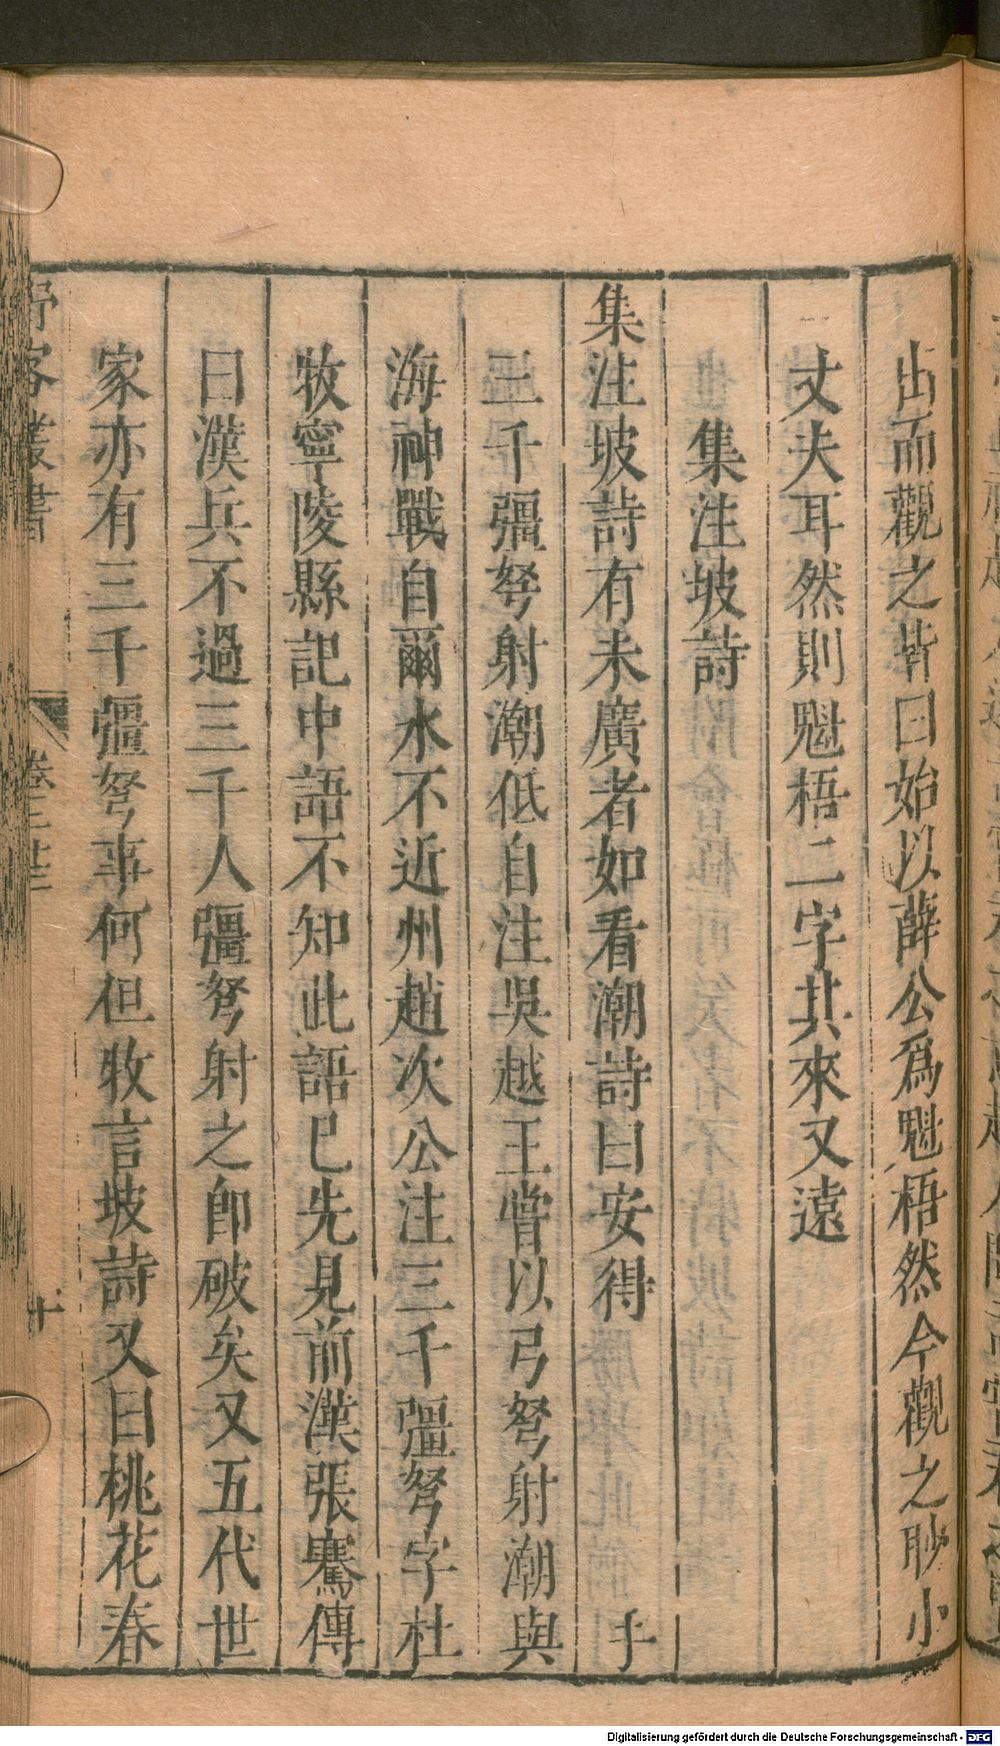 出而觀之皆曰始以薛公爲魁梧然今觀之眇小
丈夫耳然則魁梧二字其來又遠
集注坡詩
集注坡詩有未廣者如看潮詩曰安得
三千彊弩射潮低自注吳越王嘗以弓弩射潮與
海神戰自爾水不近州趙次公注三千彊弩字杜
牧寧陵縣記中語不知此語已先見前漢張騫傳
曰漢兵不過三千人彊弩射之卽破矣又五代世
家亦有三千彊弩事何但牧言坡詩又曰桃花春
野客叢書
十
Digitalisierung gefördert durch die Deutsche Forschungsgemeinschaft - DFG